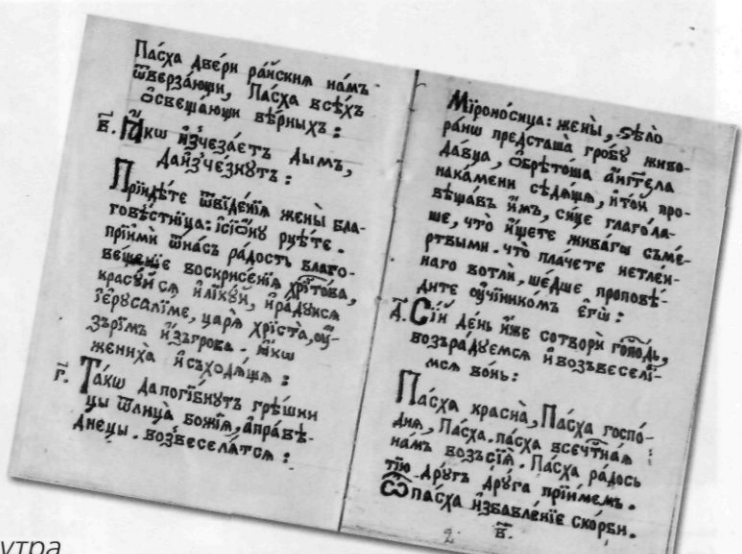 Па́сха две́ри ра́йскиѧ на́мъ
ѿверза́ющи, Па́сха всѣ́хъ
ѡ҆свѣща́ющи вѣ́рныхъ :
в҃. Ꙗ҆́кѡ и҆зчеза́етъ ды́мъ,
да и҆зче́знутъ :
Прїидѣ́те ѿвидѣ́нїѧ жены̀ бла-
говѣ́стнїца: їсїѡ́нꙋ рцѣ́те .
прїимѝ ѿна́съ ра́дость благо-
вѣще́нїе воскрисе́нїѧ хр҃то́ва,
красꙋ́йсѧ и҆лїкꙋ́й, и҆ра́дꙋйсѧ
і҆ерꙋсалі́ме, царѧ̀ хрїста̀, ꙋ҆-
зърі́мъ и҆́зъгроба . ꙗ҆́кѡ
женнха̀ и҆съходѧ́ща :
г҃. Та́кѡ да погі́бнꙋтъ грѣ́шни
цы ѿлица̀ бо́жїѧ, а҆пра́вѣ-
днецы . возвеселѧ́тсѧ :
Мѵ̈роно́сица : жены̀, ѕѣ́ло
ра́нѡ предста́ша гро́бꙋ живо-
да́вца, ѡ҆брѣто́ша а҆́нггела
нака́мени сѣдѧ́ща, и҆то́й про-
вѣща́въ и҆́мъ, си́це глаго́ла-
ше, что̀ и҆́щете жива́гѡ съме́-
ртвыми . что̀ плачете нетлѣ́н-
наго вотлѝ, ше́дше проповѣ́-
дите ꙋ҆чі́нникомъ є҆гѡ̀ :
д҃. Сі́й де́нь и҆́же сотворѝ го҃по́дь,
возъра́дꙋемсѧ и҆возъвеселі́-
мсѧ во́нь :
Па́сха красна̀, Па́сха госпо́-
днѧ, Па́сха . па́сха всечт҃на́ѧ :
на́мъ возъсїѧ̀ . Па́сха ра́дось
тїю дрꙋ́гъ дрꙋ́га прїи́мемъ .
Ѽ па́сха и҆збавле́нїе ско́рби .
2
в҃.
утра